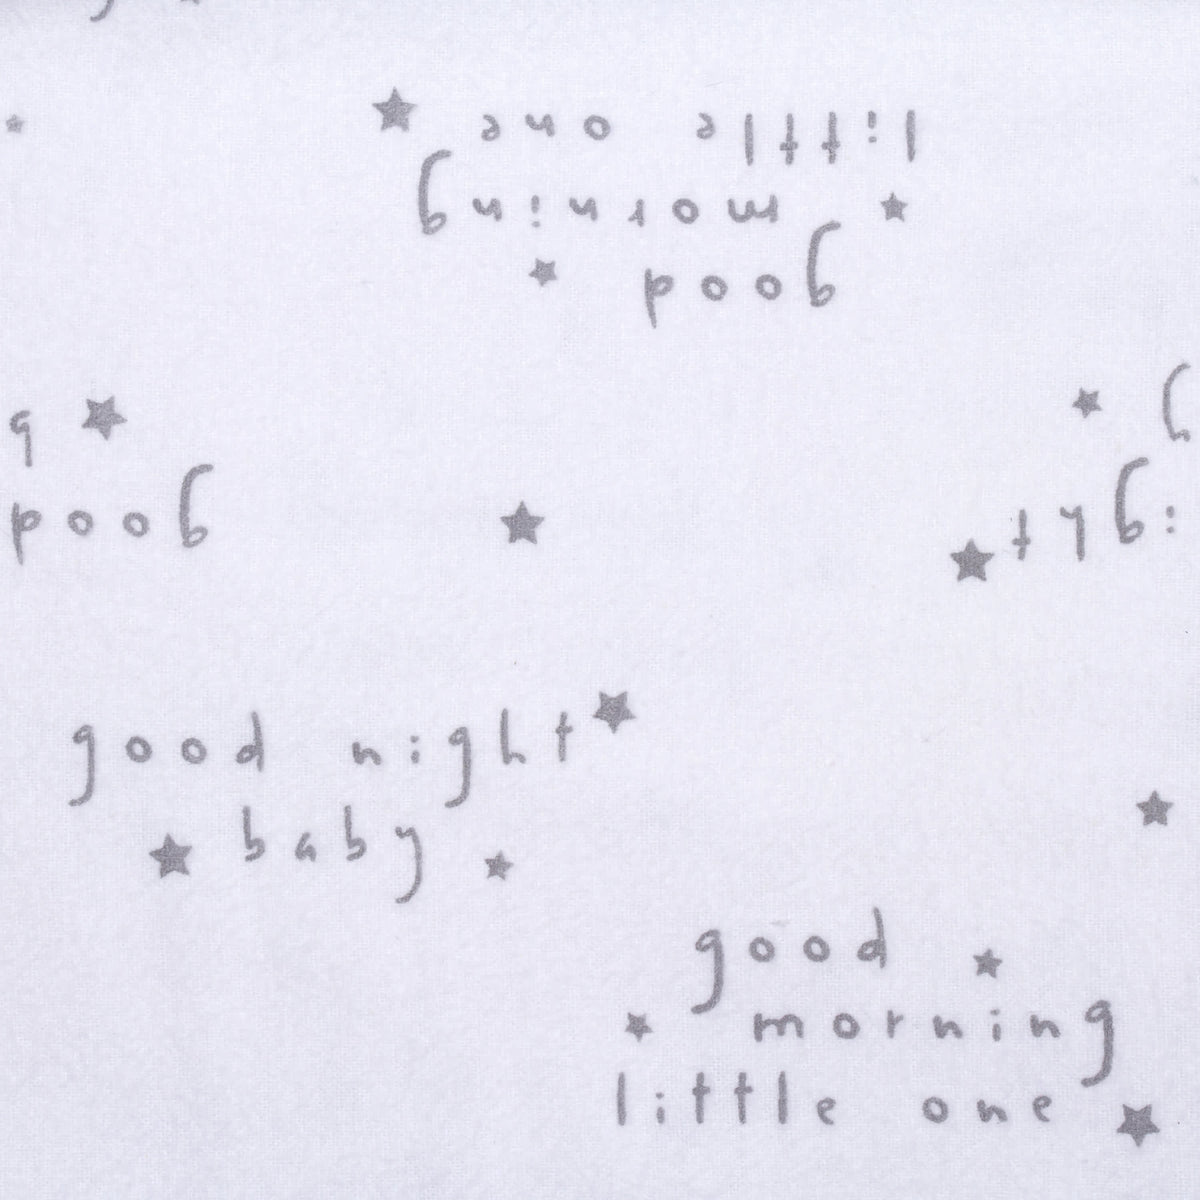 good
morning
little one
good
good night
baby
good
morning
little one